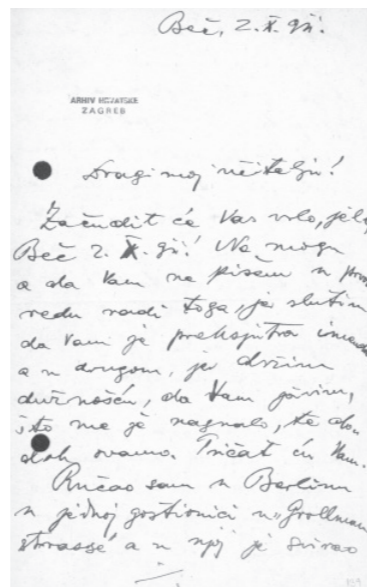 Beč, 2. X. 941.
ARHIV HRVATSKE
ZAGREB
Dragi moj učitelju!
Začudit će Vas vrlo, jel'
Beč 2. X. 941! Ne mogu
a da Vam ne pišem u prvom
redu radi toga, jer slutim
da Vam je prekjuče
a u drugom, jer držim
dužnošću, da Vam javim,
što me je nagnalo, te do
dok ovamo. Pričat ću Vam.
Ručao sam u Berlinu
u jednoj gostionici u "Grollman
strasse" a u njoj je svirao